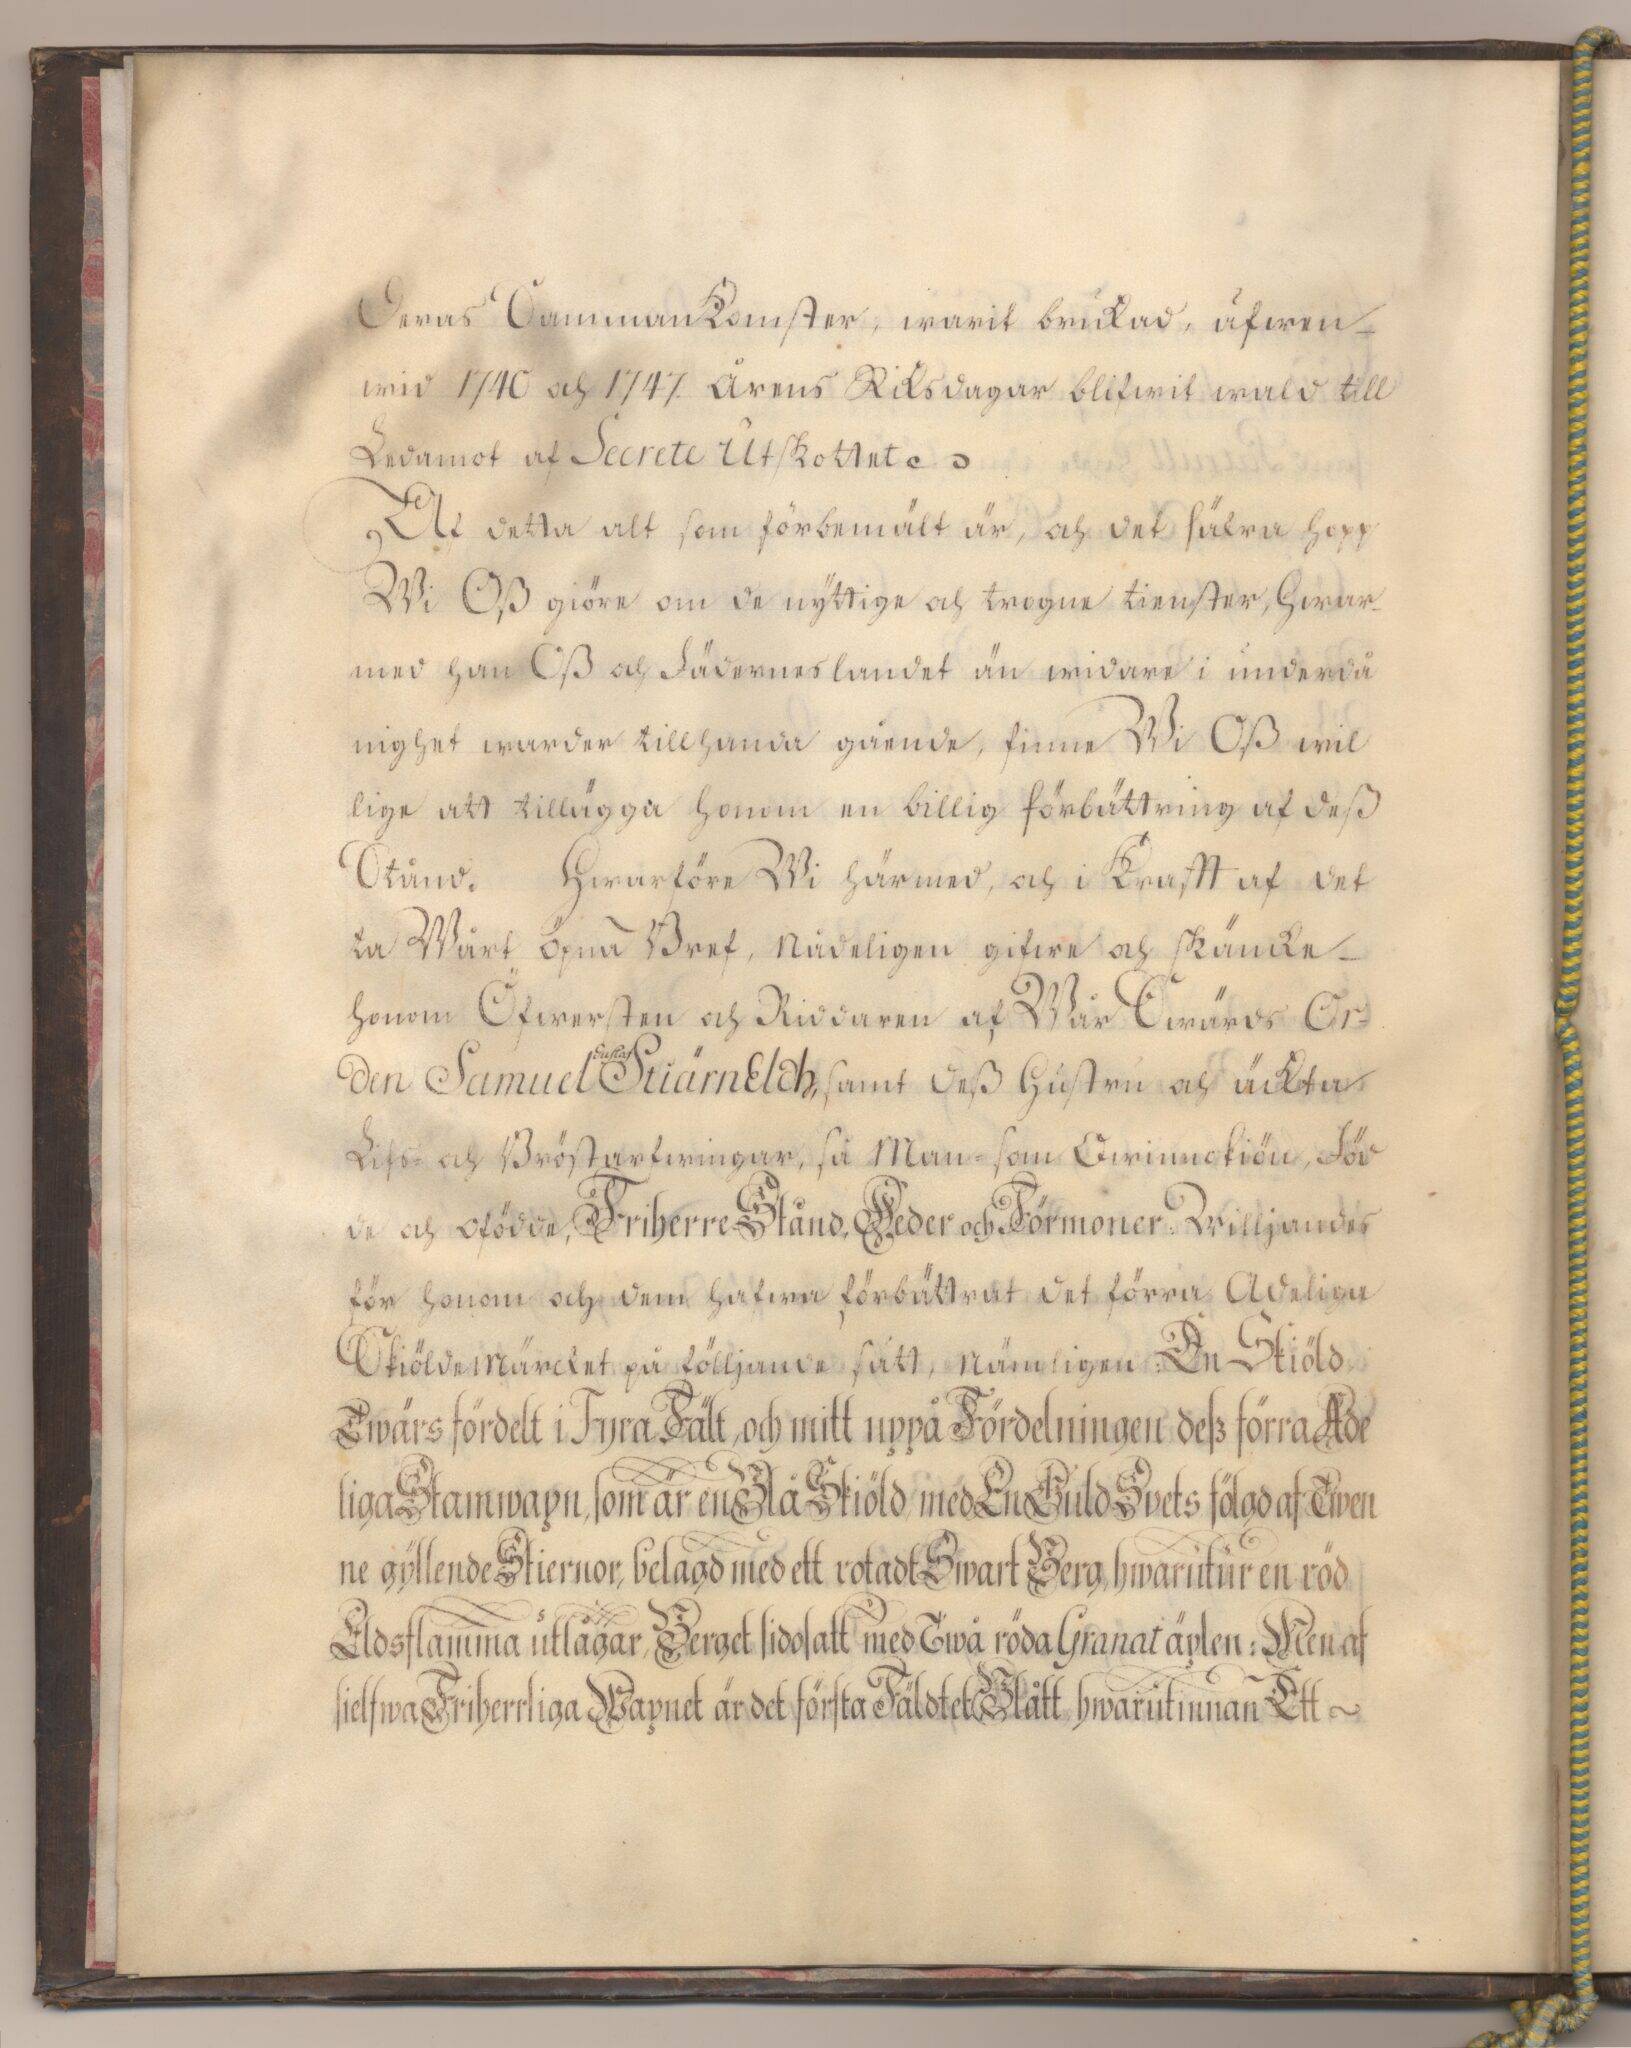 Deras Sammankomster, warit brukad, äfwen
wid 1740 och 1747 Årens Riksdagar blifwit wald till
Ledamot af Secrete Utskottet.
Af detta alt som förbemält är, och det säkra hopp
Wi Oß giöre om de nyttige och trogne tienster, hwar-
med han Oß och Fäderneslandet än widare i underdå
nighet warder tillhanda gående, finne Wi Oß wil
lige att tillägga honom en billig förbättring af deß
Stånd. Hwarföre Wi härmed, och i Krafft af det
ta Wårt öpna Bref, Nådeligen gifwe och skäncke
honom Öfwersten och Riddaren af Wår Swärds Or-
den Samuel Gustaf Stiärneld, samt deß hustru och äckta
Lifs- och Bröstarfwingar, så Man- som Qwinnokiön, Föd
de och ofödde, Friherre Stånd, Heder och Förmoner. Williandes
för honom och dem hafwa förbättrat det förra Adeliga
Skiöldemärcket på fölljande sätt, Nämligen: En Skiöld
Twärs fördelt i Fyra Fält, och mitt uppå Fördelningen deß förra Ade
liga Stamwapn, som är en Blå Skiöld med En Guld Spets fölgd af Twen
ne gyllende Stiernor, belagd med ett rotadt Swart Berg, hwarutur en röd
Eldsflamma utlågar, Berget sidosatt med Twå röda Granat äplen: Men af
sielfwa Friherrliga Wapnet är det första Fäldtet Blått, hwarutinnan Ett